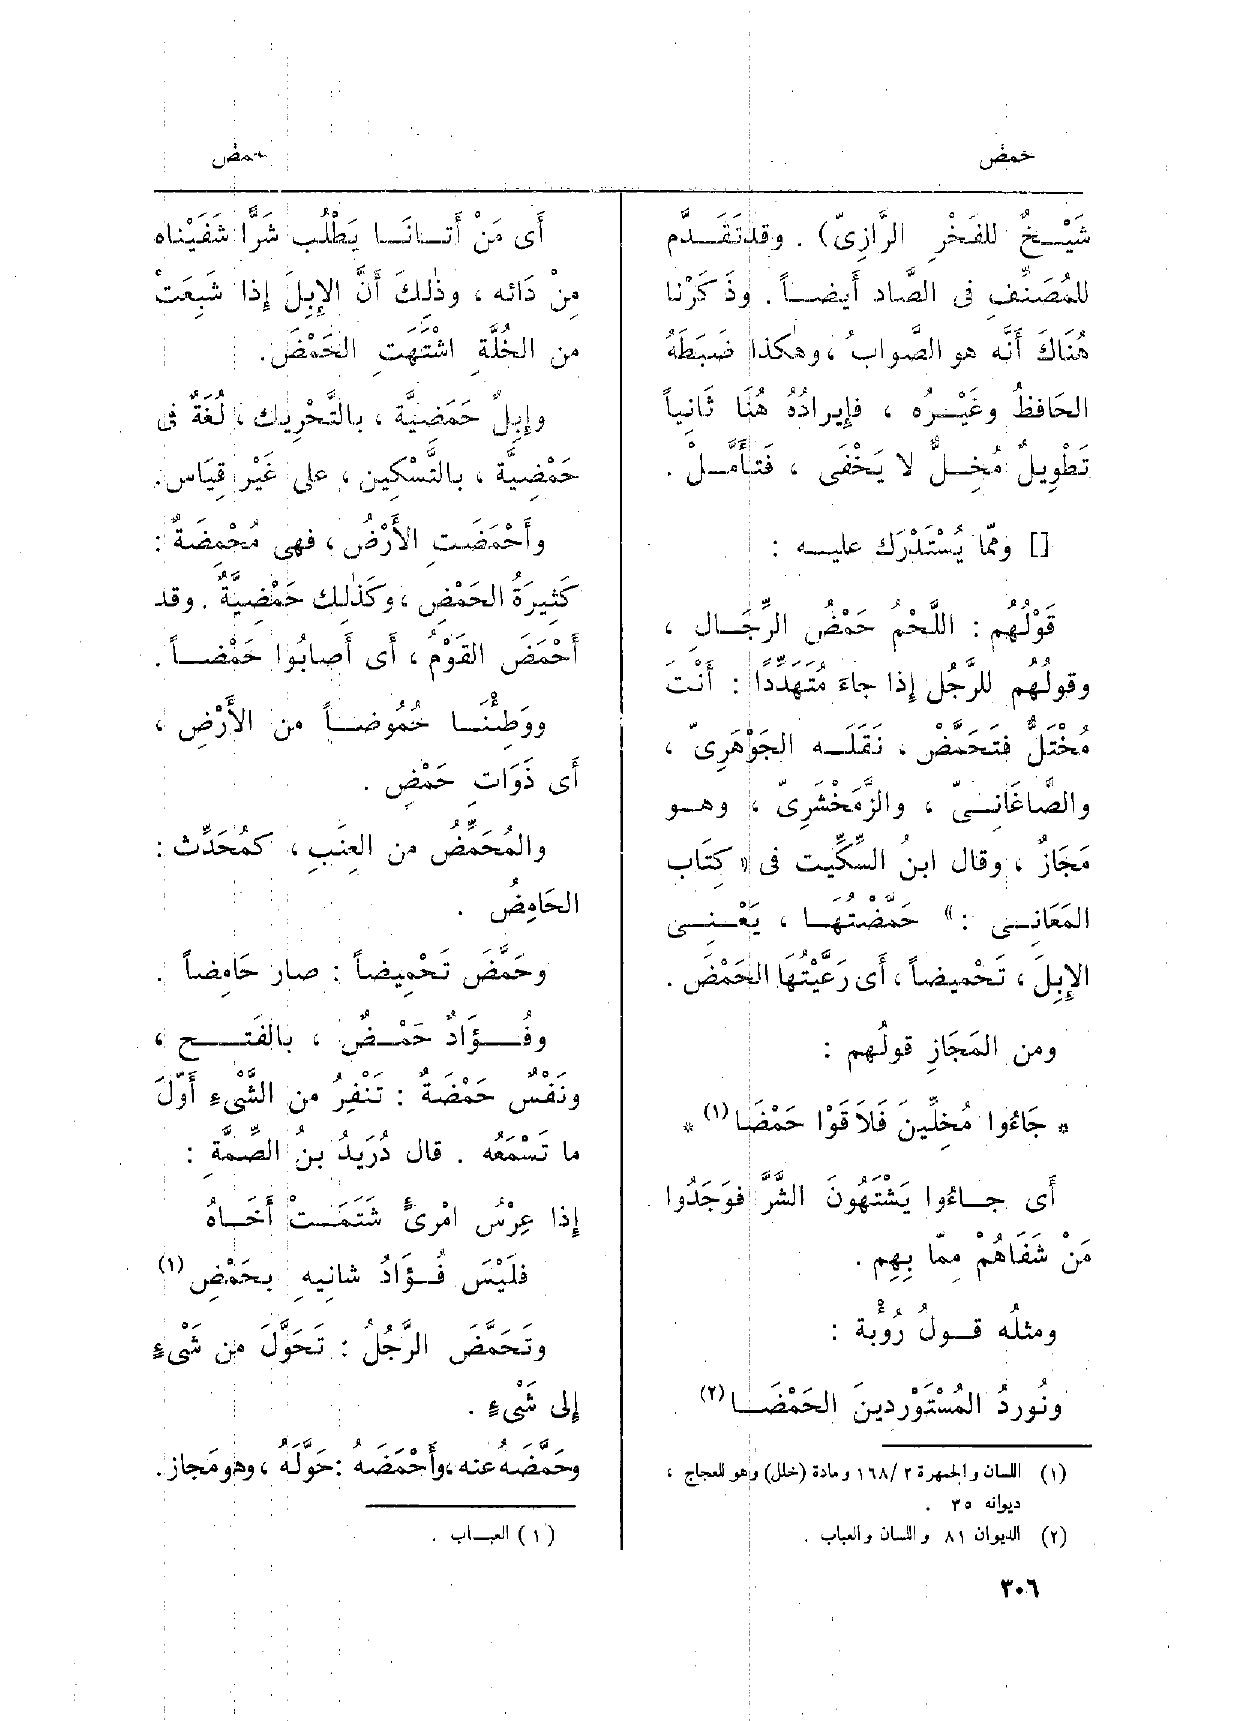 حمض
حمض
شَيْــخٌ للفَخْرِ الرَّازِىّ) . وقد تَقَــدَّم
للمُصَنِّفِ فى الصَّاد أَيضــاً . وذَكَرْنا
هُنَاكَ أَنَّه هو الصَّوابُ ، وهٰكذا ضَبطَهُ
الحَافظُ وغَيْــرُه ، فإِيرادُهُ هُنَا ثَانياً
تَطْوِيلٌ مُخِــلٌّ لا يَخْفَى ، فتَأَمَّــلْ .
[] وممّا يُسْتَدْرَك عليــه :
قَوْلُهُم : اللَّحْمُ حَمْضُ الرِّجَــالِ ،
وقولُهُم للرَّجُلِ إِذا جاءَ مُتَهَدِّدًا : أَنْتَ
مُخْتَلٌّ فتَحَمَّضْ ، نَقَلَــه الجَوْهَرِىّ ،
والصَّاغَانــىّ ، والزَّمَخْشَرِىّ ، وهــو
مَجَازٌ ، وقال ابنُ السِّكِّيت فى « كِتَاب
المَعَانِــى : » حَمَّضْتُهَــا ، يَعْــنِــى
الإِبِلَ ، تَحْمِيضاً ، أَى رَعَّيْتُهَا الحَمْضَ .
ومن المَجَازِ قولُهم :
* جَاءُوا مُخِلِّينَ فَلاَقَوْا حَمْضَا (١) *
أَى جــاءُوا يَشْتَهُونَ الشَّرَّ فوَجَدُوا
مَنْ شَفَاهُمْ مِمّا بِهِم .
ومثلُه قــولُ رُؤْبة :
ونُورِدُ المُسْتَوْرِدِينَ الحَمْضَــا (٢)
(١) اللسان والجمهرة ٢ /١٦٨ ومادة (خلل) وهو للعجاج ،
ديوانه ٣٥ .
(٢) الديوان ٨١ واللسان والعباب .
أَى مَنْ أَتــانَــا يَطْلُب شَرًّا شَفَيْناه
مِنْ دَائه ، وذٰلِكَ أَنَّ الإِبِلَ إِذا شَبِعَتْ
من الخُلَّةِ اشْتَهَتِ الحَمْضَ .
وإِبِلٌ حَمَضِيَّة ، بالتَّحْرِيك ، لُغَةٌ فى
حَمْضِيَّة ، بالتَّسْكِينِ ، على غَيْرِ قِيَاسٍ .
وأَحْمَضَتِ الأَرْضُ ، فهى مُحْمِضَةٌ :
كَثِيرَةُ الحَمْضِ ، وكَذٰلِك حَمْضِيَّةٌ . وقد
أَحْمَضَ القَوْمُ ، أَى أَصابُوا حَمْضــاً .
ووَطِئْنَــا حُمُوضــاً من الأَرْضِ ،
أَى ذَوَاتِ حَمْضٍ .
والمُحَمِّضُ من العِنَبِ ، كمُحَدِّث :
الحَامِضُ .
وحَمَّضَ تَحْمِيضاً : صار حَامِضاً .
وفُــؤَادٌ حَمْــضٌ ، بالفَتــح ،
ونَفْسٌ حَمْضَةٌ : تَنْفِرُ من الشَّىْءِ أَوّلَ
ما تَسْمَعُه . قال دُرَيْدُ بنُ الصِّمَّةِ :
إِذا عِرْسُ امْرِئٍ شَتَمَــتْ أَخَــاهُ
فلَيْسَ فُــؤَادُ شانِيهِ بِحَمْضِ (١)
وتَحَمَّضَ الرَّجُلُ : تَحَوَّلَ من شَىْءٍ
إِلى شَىْءٍ .
وحَمَّضَه عنه ، وأَحْمَضَهُ : حَوَّلَهُ ، وهو مَجاز .
(١) العبــاب .
٣٠٦